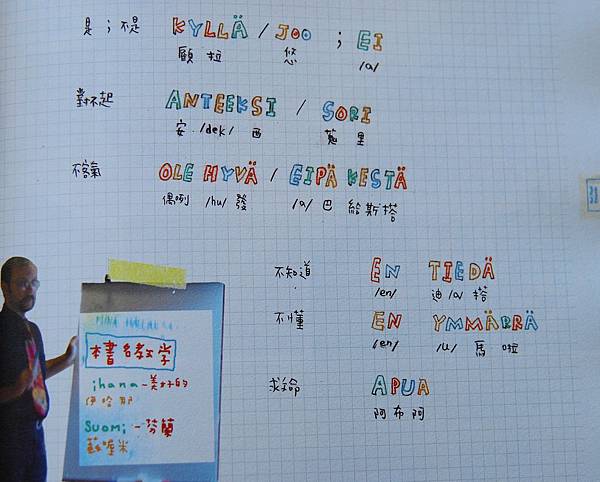 是；不是 KYLLÄ / JOO ; EI
顧拉 悠 /a/
對不起 ANTEEKSI / SORI
安 /dek/ 西 蒐里
不客氣 OLE HYVÄ / EIPÄ KESTÄ
偶咧 /hu/ 發 /a/ 巴 給斯搭
不知道 EN TIEDÄ
/en/ 迪 /a/ 搭
不懂 EN YMMÄRRÄ
/en/ /u/ 馬啦
救命 APUA
阿布阿
ihana-美好的
伊哈那
Suomi-芬蘭
蘇喔米